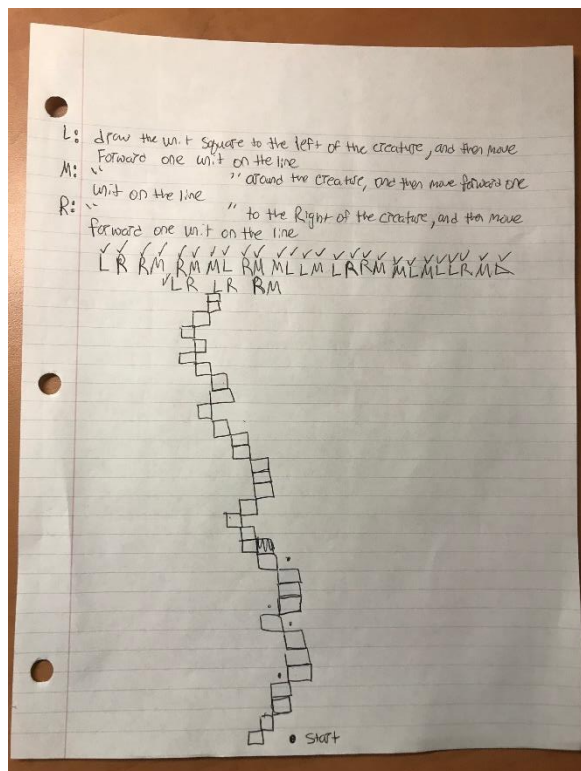 L: draw the unit square to the left of the creature, and then move
Forward one unit on the line
M: " " around the creature, and then move forward one
unit on the line
R: " " to the Right of the creature, and then move
forward one unit on the line
L R R M R M M L R M M L L M L R R M M L M L L R M
L R L R R M
Start